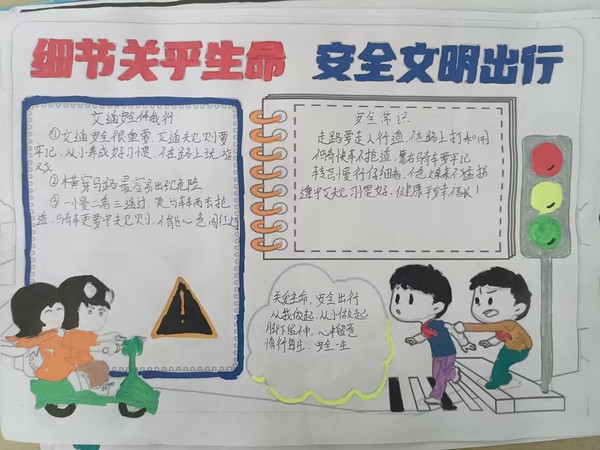 细节关乎生命 安全文明出行
交通安全伴我行
①交通安全很重要,交通规则要
牢记,从小养成好习惯,在路上玩游
戏
②横穿马路最容易出现危险
③一慢二看三通过,莫与车两去抢
道,骑车更要守规则,不能闯红灯
安全常识
走路要走人行道,在路上打和闹
何有快车不抢道,靠右骑车要牢记
转弯慢行仔细看
遵守交规习惯好,健康平安伴成长!
关爱生命,安全出行
从我做起,从小做起
脚下留神,心中留意
慎行百年,安全一生